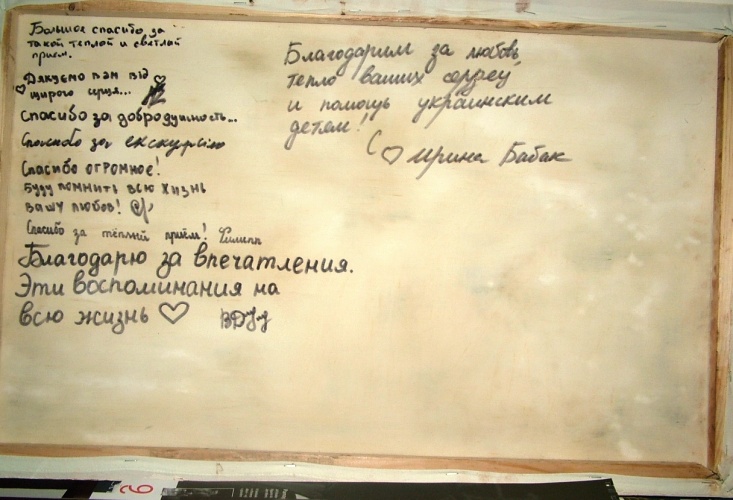 Большое спасибо за
такой теплой и светлай
прием.
Дякуємо вам від
щирого серця...
Спасибо за добродушность...
Спасибо за екскурсію
Спасибо огромное!
Буду помнить всю жизнь
вашу любов!
Спасибо за тёплый приём! Филипп
Благодарю за впечатления.
Эти воспоминания на
всю жизнь
Благодарим за любовь,
тепло ваших сердец
и помощь украинским
детям!
С ♡ Ирина Бабак